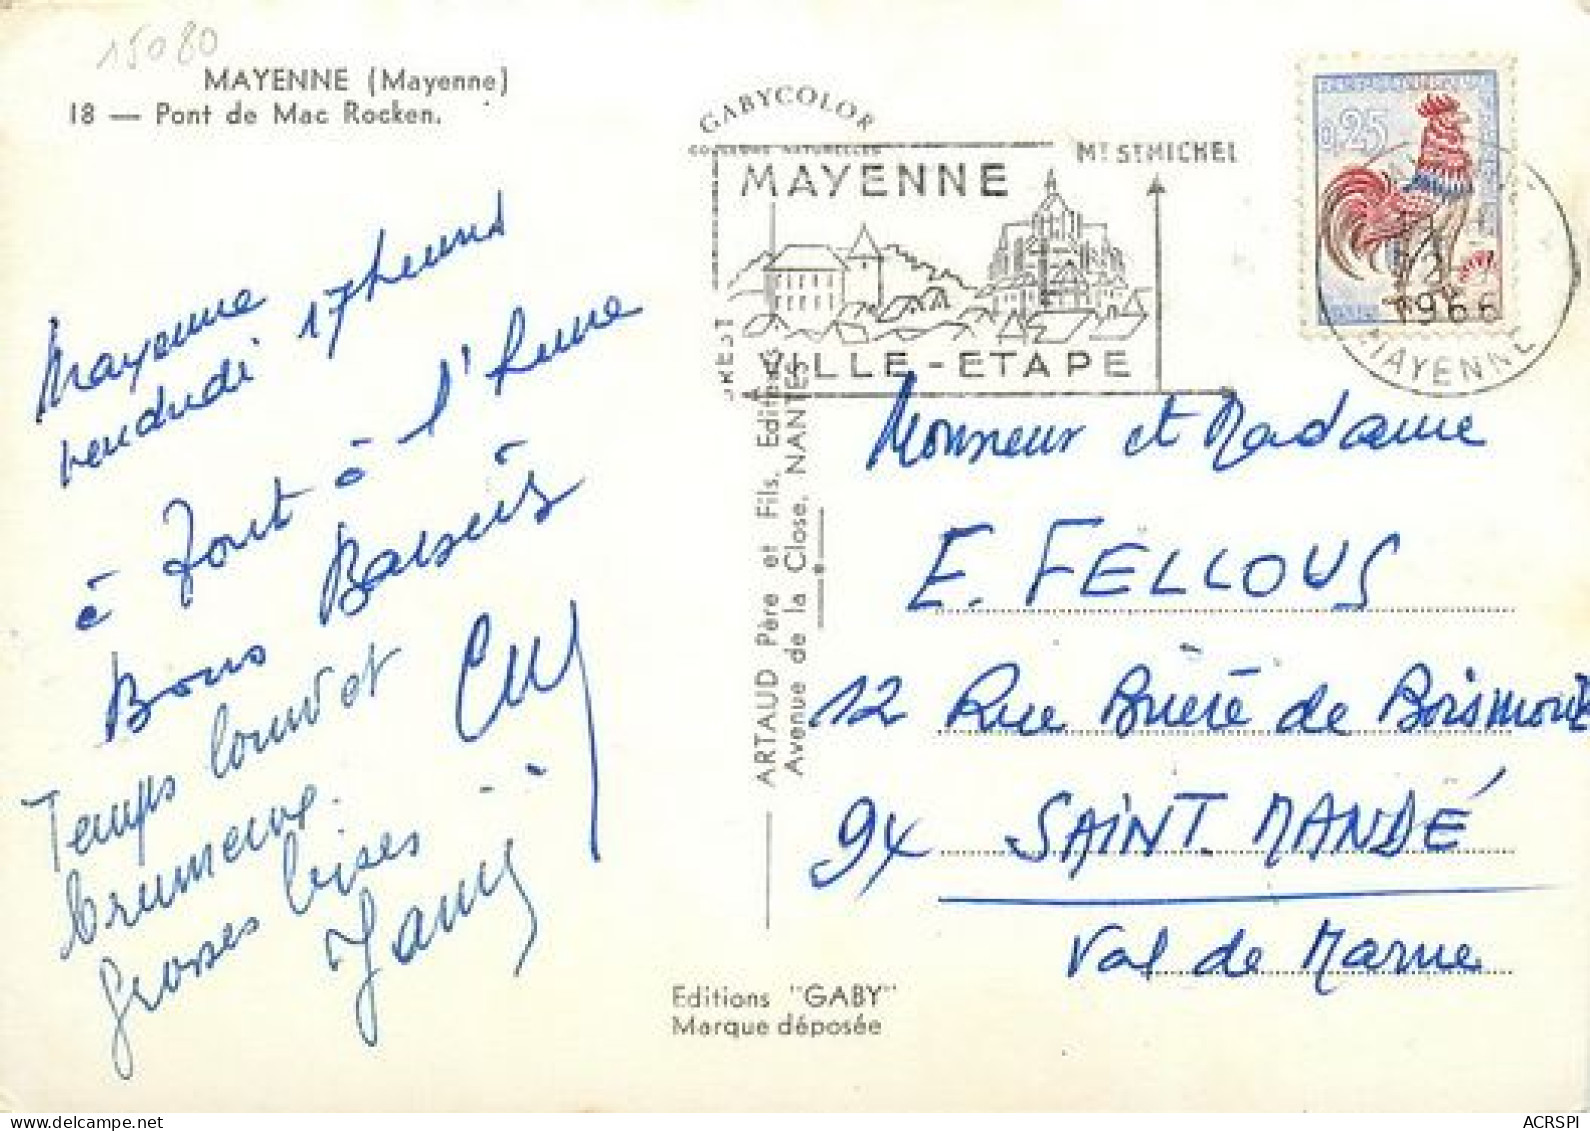 15080
MAYENNE (Mayenne)
18 — Pont de Mac Rocken.
GABYCOLOR
COULEURS NATURELLES
MAYENNE
Mt St MICHEL
BREST
VILLE - ETAPE
0,25
1966
MAYENNE
Mayenne
vendredi 17 heures
à tout à l'heure
Bons Baisers
Temps lourd et
brumeux.
Grosses bises
ARTAUD Père et Fils, Editeurs
Avenue de la Close, NANTES
Monsieur et Madame
E. FELLOUS
12 Rue Brière de Boismont
94 SAINT. MANDÉ
Val de Marne
Editions "GABY"
Marque déposée
ACRSPI